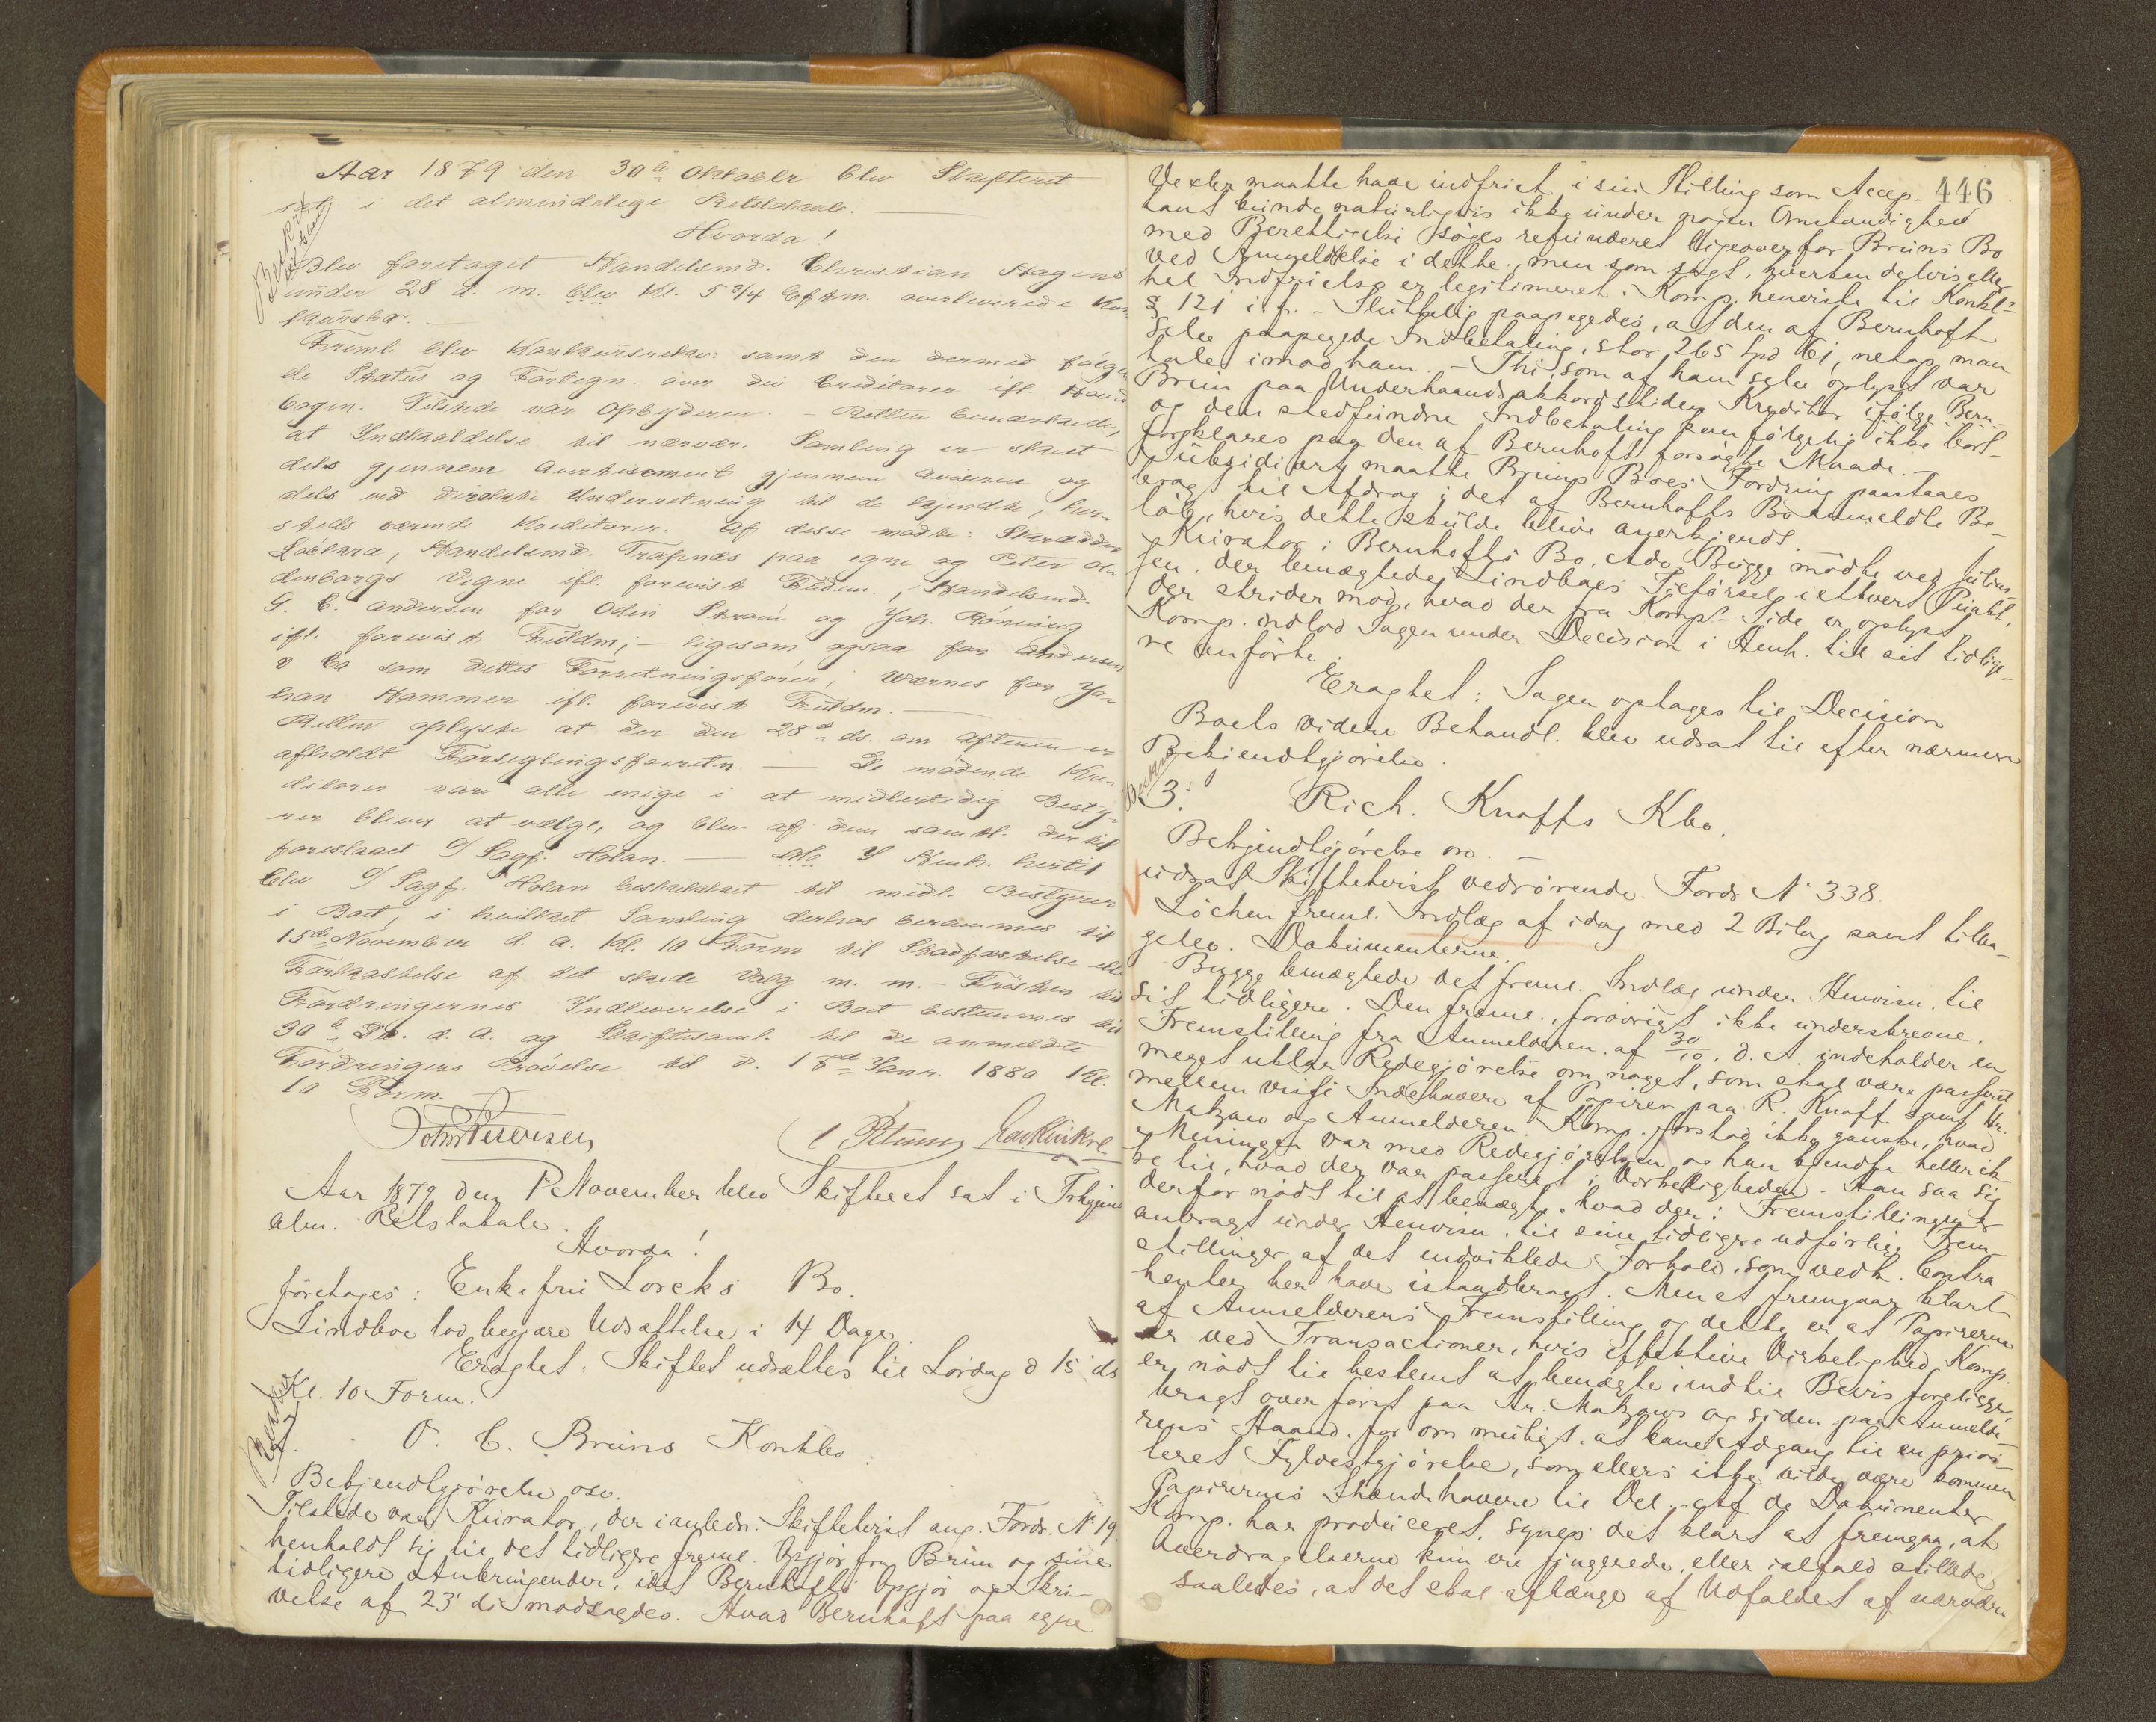 Aar 1879 den 30te Oktober blev Skifteret
sat i det almindelige Retslokale.
Hvorda!
Blev foretaget Handelsmd. Christian Hagens
under 28 d. m. blev Kl. 5 3/4 Eftm. overleverede Kon-
kursbo.
Freml. blev Konkursrekv: samt den dermed følgen
de Status og Fortegn. over div Creditorer ifl. Hoved
bogen. Tilstede var Opbyderen. - Retten bemærkede,
at Indkaldelse til nærvær. Samling er skeet
dels gjennem Avertisement gjennem Aviserne og
dels ved direkte Underretning til de kjendte, her-
steds værende Kreditorer. Af disse mødte: Skrædder
Handelsmd. Trapnæs paa egne og Peter
denborgs Vegne ifl. forevist Fuldm., Handelsmd.
G. C. Andersen for Odin Strøm og Joh. Rønning
ifl. forevist Fuldm; - ligesom ogsaa for Andersen
& Co som dettes Forretningsfører; Wærnes for Jo-
han Hammer ifl. forevist Fuldm.
Retten oplyste at der den 28de ds. om Aftenen er
afholdt Forseglingsforretn. - De mødende Kre-
ditorer vare alle enige i at midlertidig Besty-
rer bliver at vælge, og blev af dem samtl. dertil
foreslaaet O/Sagf. Holan. - I Henh. hertil
blev O/Sagf. Holan beskikket til midl. Bestyrer
i Boet, i hvilket Samling derhos berammes til
15de November d. A. Kl. 10 Form til Stadfæstelse ell.
Forkastelse af det skede Valg m. m. - Fristen til
Fordringernes Indleverelse i Boet bestemmes til
30te d. A. og Skiftesaml. til de anmeldte
Fordringers Prøvelse til d. Janr. 1880 Kl.
10 Form.
Aar 1879 den 1 November blev Skifteret sat i Trhjem
alm. Retslokale.
Hvorda!
foretages: Enkefru Lorcks Bo.
Lindboe lod begjære Udsættelse i 14 Dage.
Eragtet: Skiftet udsættes til Lørdag d 15 ds
Kl. 10 Form.
2. O. C. Bruns Konkbo
Bekjendtgjørelse osv.
Tilstede var Kurator, der i anledn. Skiftetvist ang. Fordr. No 19
henholdt sig til det tidligere freml. Opgjør fra Brun og sine
tidligere Anbringender, idet Bernhofts Opgjør og Skri-
velse af 23' ds modsagdes. Hvad Bernhoft paa egne
446
Vexler maatte have indfriet i sin Stilling som Accep-
tant kunde naturligvis ikke under nogen Omstændighed
med Berettigelse søges refunderet ligeoverfor Bruns Bo
ved Anmeldelse i dette, men som sagt, hverken delvis eller
hel Indfrielse er legitimeret. Komp. henviste til Konkl-
§ 121 i. f. - Sluttelig paapegedes, at den af Bernhoft
selv paapegede Indbetaling, stor 265 Spd 61, netop maa
tale imod ham. - Thi som af ham selv oplyst var
Brun paa Underhaandsakkordstiden Kreditor ifølge Bern-
og den stedfundne Indbetaling kan følgelig ikke bort-
forklares paa den af Bernhoft forsøgte Maade. -
Subsidiært maatte Bruns Boes Fordring paastaaes
bragt til Afdrag i det af Bernhofts Bo anmeldte Be-
løb, hvis dette skulde blive anerkjendt.
Kurator i Bernhofts Bo, Adv. Bugge mødte ved Julius-
sen, der benægtede Lindboes Tilførsel i ethvert Punkt,
der strider mod, hvad der fra Komp.s Side er oplyst.
Komp. indlod Sagen under Decision i Henh. til sit tidlige-
re anførte.
Eragtet: Sagen optages til Decision
Boets videre Behandl. blev udsat til efter nærmere
Bekjendtgjørelse.
3. Rich. Knoffs Kbo.
Bekjendtgjørelse osv. -
udsat Skiftetvist vedrørende Fordr No 338.
Løchen freml. Indlæg af idag med 2 Bilag samt tilba-
gelev. Dokumenterne.
Bugge benægtede det freml. Indlæg under Henvisn. til
sit tidligere. Den freml., forøvrigt ikke underskrevne,
Fremstilling fra Anmelderen af 30/10 d. A. indeholder en
meget uklar Redegjørelse om noget, som skal være passeret
mellem visse Indehavere af Papirer paa R. Knoff samt Hr.
Matzow og Anmelderen. Komp. forstod ikke ganske, hvad
Meningen var med Redegjørelsen og han kjendte heller ik-
ke til, hvad der var passeret i Virkeligheden. Han saa sig
derfor nødt til at benægte, hvad der i Fremstillingen er
anbragt under Henvisn. til sine tidligere udførlige Frem-
stillinger af det indviklede Forhold, som vedk. Contra-
henter her have istandbragt. Men et fremgaar klart
af Anmelderens Fremstilling og dette er at Papirerne
er ved Transactioner, hvis effektive Virkelighed Komp.
er nødt til bestemt at benægte, indtil Bevis foreligger,
bragt over først paa Hr. Matzows og siden paa Anmelde-
rens Haand, for om muligt, at bane Adgang til en priori-
teret Fyldestgjørelse, som ellers ikke vilde være kommen
Papirernes Ihændehavere til Del. Af de Dokumenter
Komp. har produceret, synes det klart at fremgaa, at
Overdragelserne kun ere fingerede, eller ialfald stillede
saaledes, at det skal afhænge af Udfaldet af nærvære